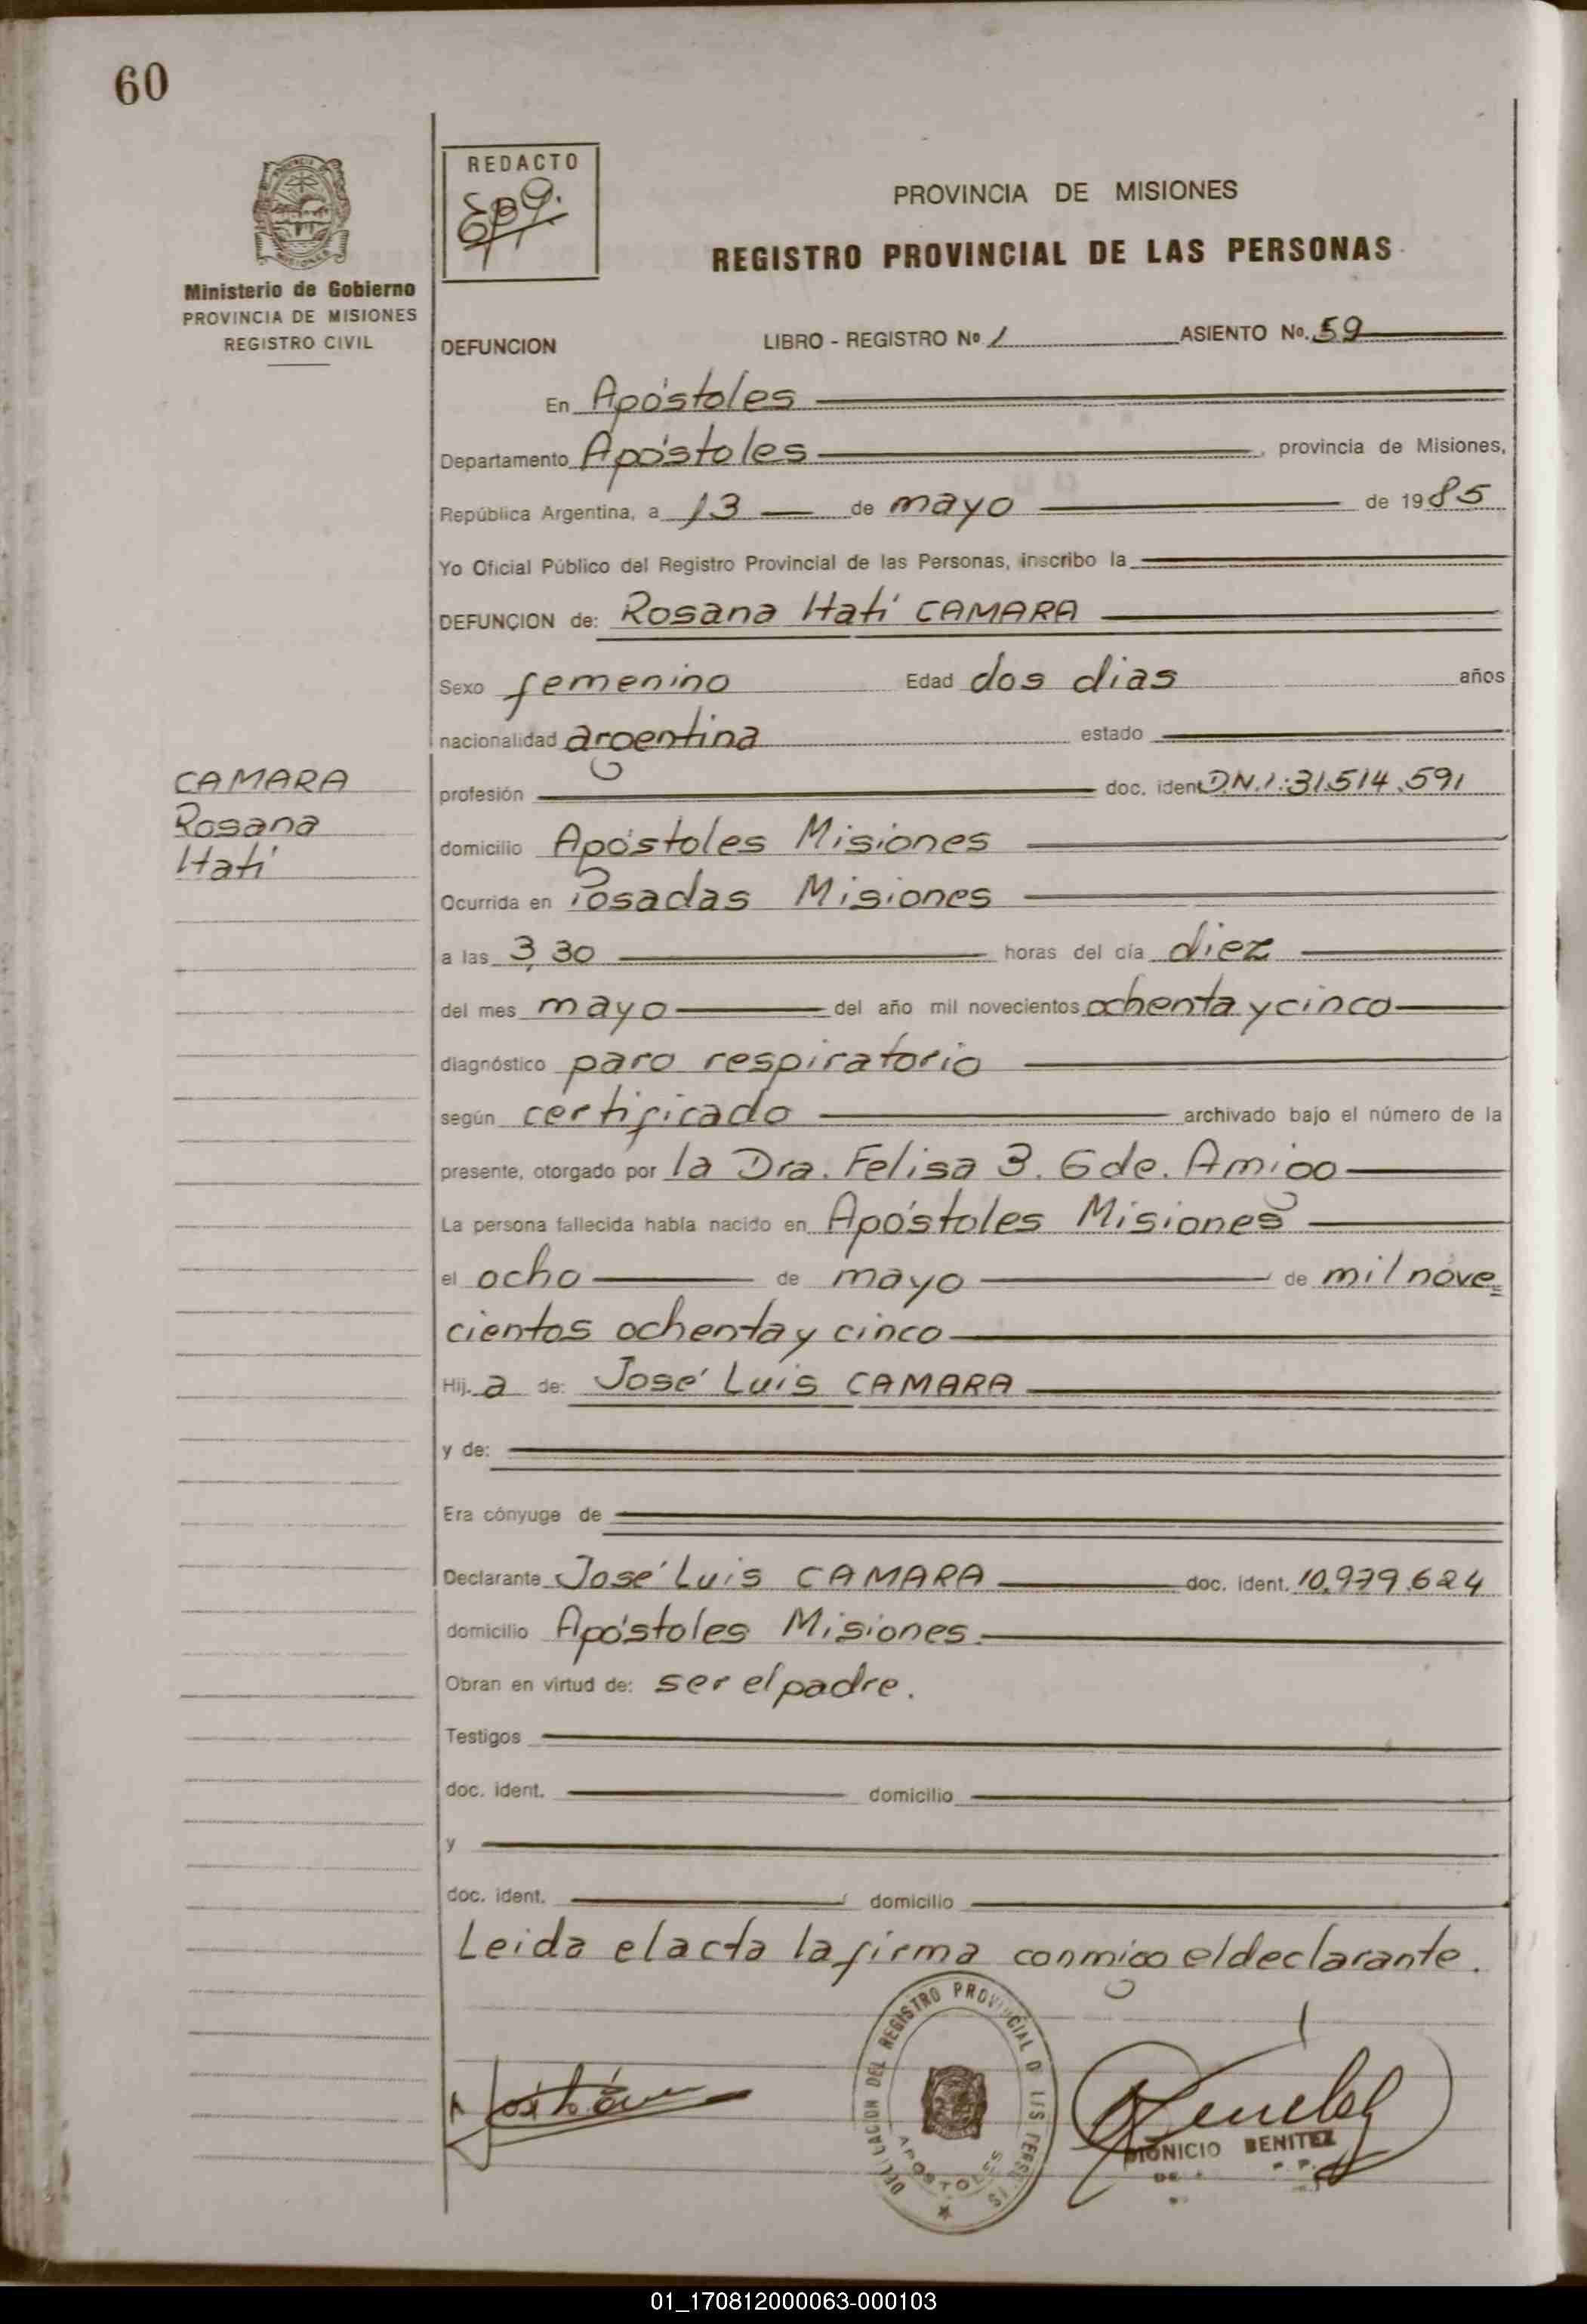 60
REDACTO
Ministerio de Gobierno
PROVINCIA DE MISIONES
REGISTRO CIVIL
PROVINCIA DE MISIONES
REGISTRO PROVINCIAL DE LAS PERSONAS
DEFUNCION LIBRO - REGISTRO Nº 1 ASIENTO Nº. 59
En Apóstoles
Departamento Apóstoles, provincia de Misiones,
República Argentina, a 13 de mayo de 1985
Yo Oficial Público del Registro Provincial de las Personas, inscribo la
DEFUNCION de: Rosana Itatí CAMARA
Sexo femenino Edad dos dias años
nacionalidad argentina estado
CAMARA
Rosana
Itatí
profesión doc. ident D.N.I.:31.514.591
domicilio Apóstoles Misiones
Ocurrida en Posadas Misiones
a las 3,30 horas del día diez
del mes mayo del año mil novecientos ochenta y cinco
diagnóstico paro respiratorio
según certificado archivado bajo el número de la
presente, otorgado por la Dra. Felisa B. G de. Amigo
La persona fallecida había nacido en Apóstoles Misiones
el ocho de mayo de mil nove=
cientos ochenta y cinco
Hij. a de: José Luis CAMARA
y de:
Era cónyuge de
Declarante José Luis CAMARA doc. ident. 10.979.624
domicilio Apóstoles Misiones.
Obran en virtud de: ser el padre.
Testigos
doc. ident. domicilio
y
doc. ident. domicilio
Leida el acta la firma conmigo el declarante.
DELEGACION DEL REGISTRO PROVINCIAL D LAS PERSONAS
APOSTOLES
DIONICIO BENITEZ
01_170812000063-000103